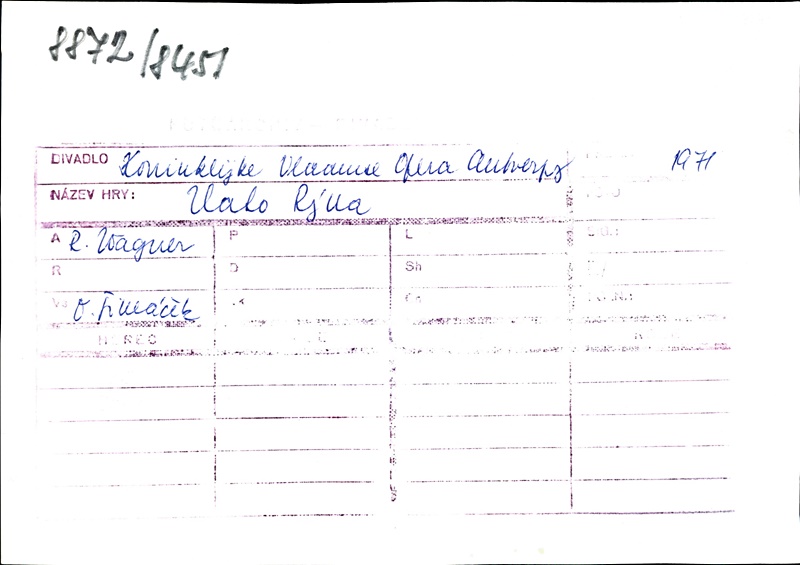 8872/8451
DIVADLO Koninklijke Vlaamse Opera Antverpy 1971
NÁZEV HRY: Zlato Rýna
A R. Wagner P L
R D Sh
O. Šimáček
HEREC